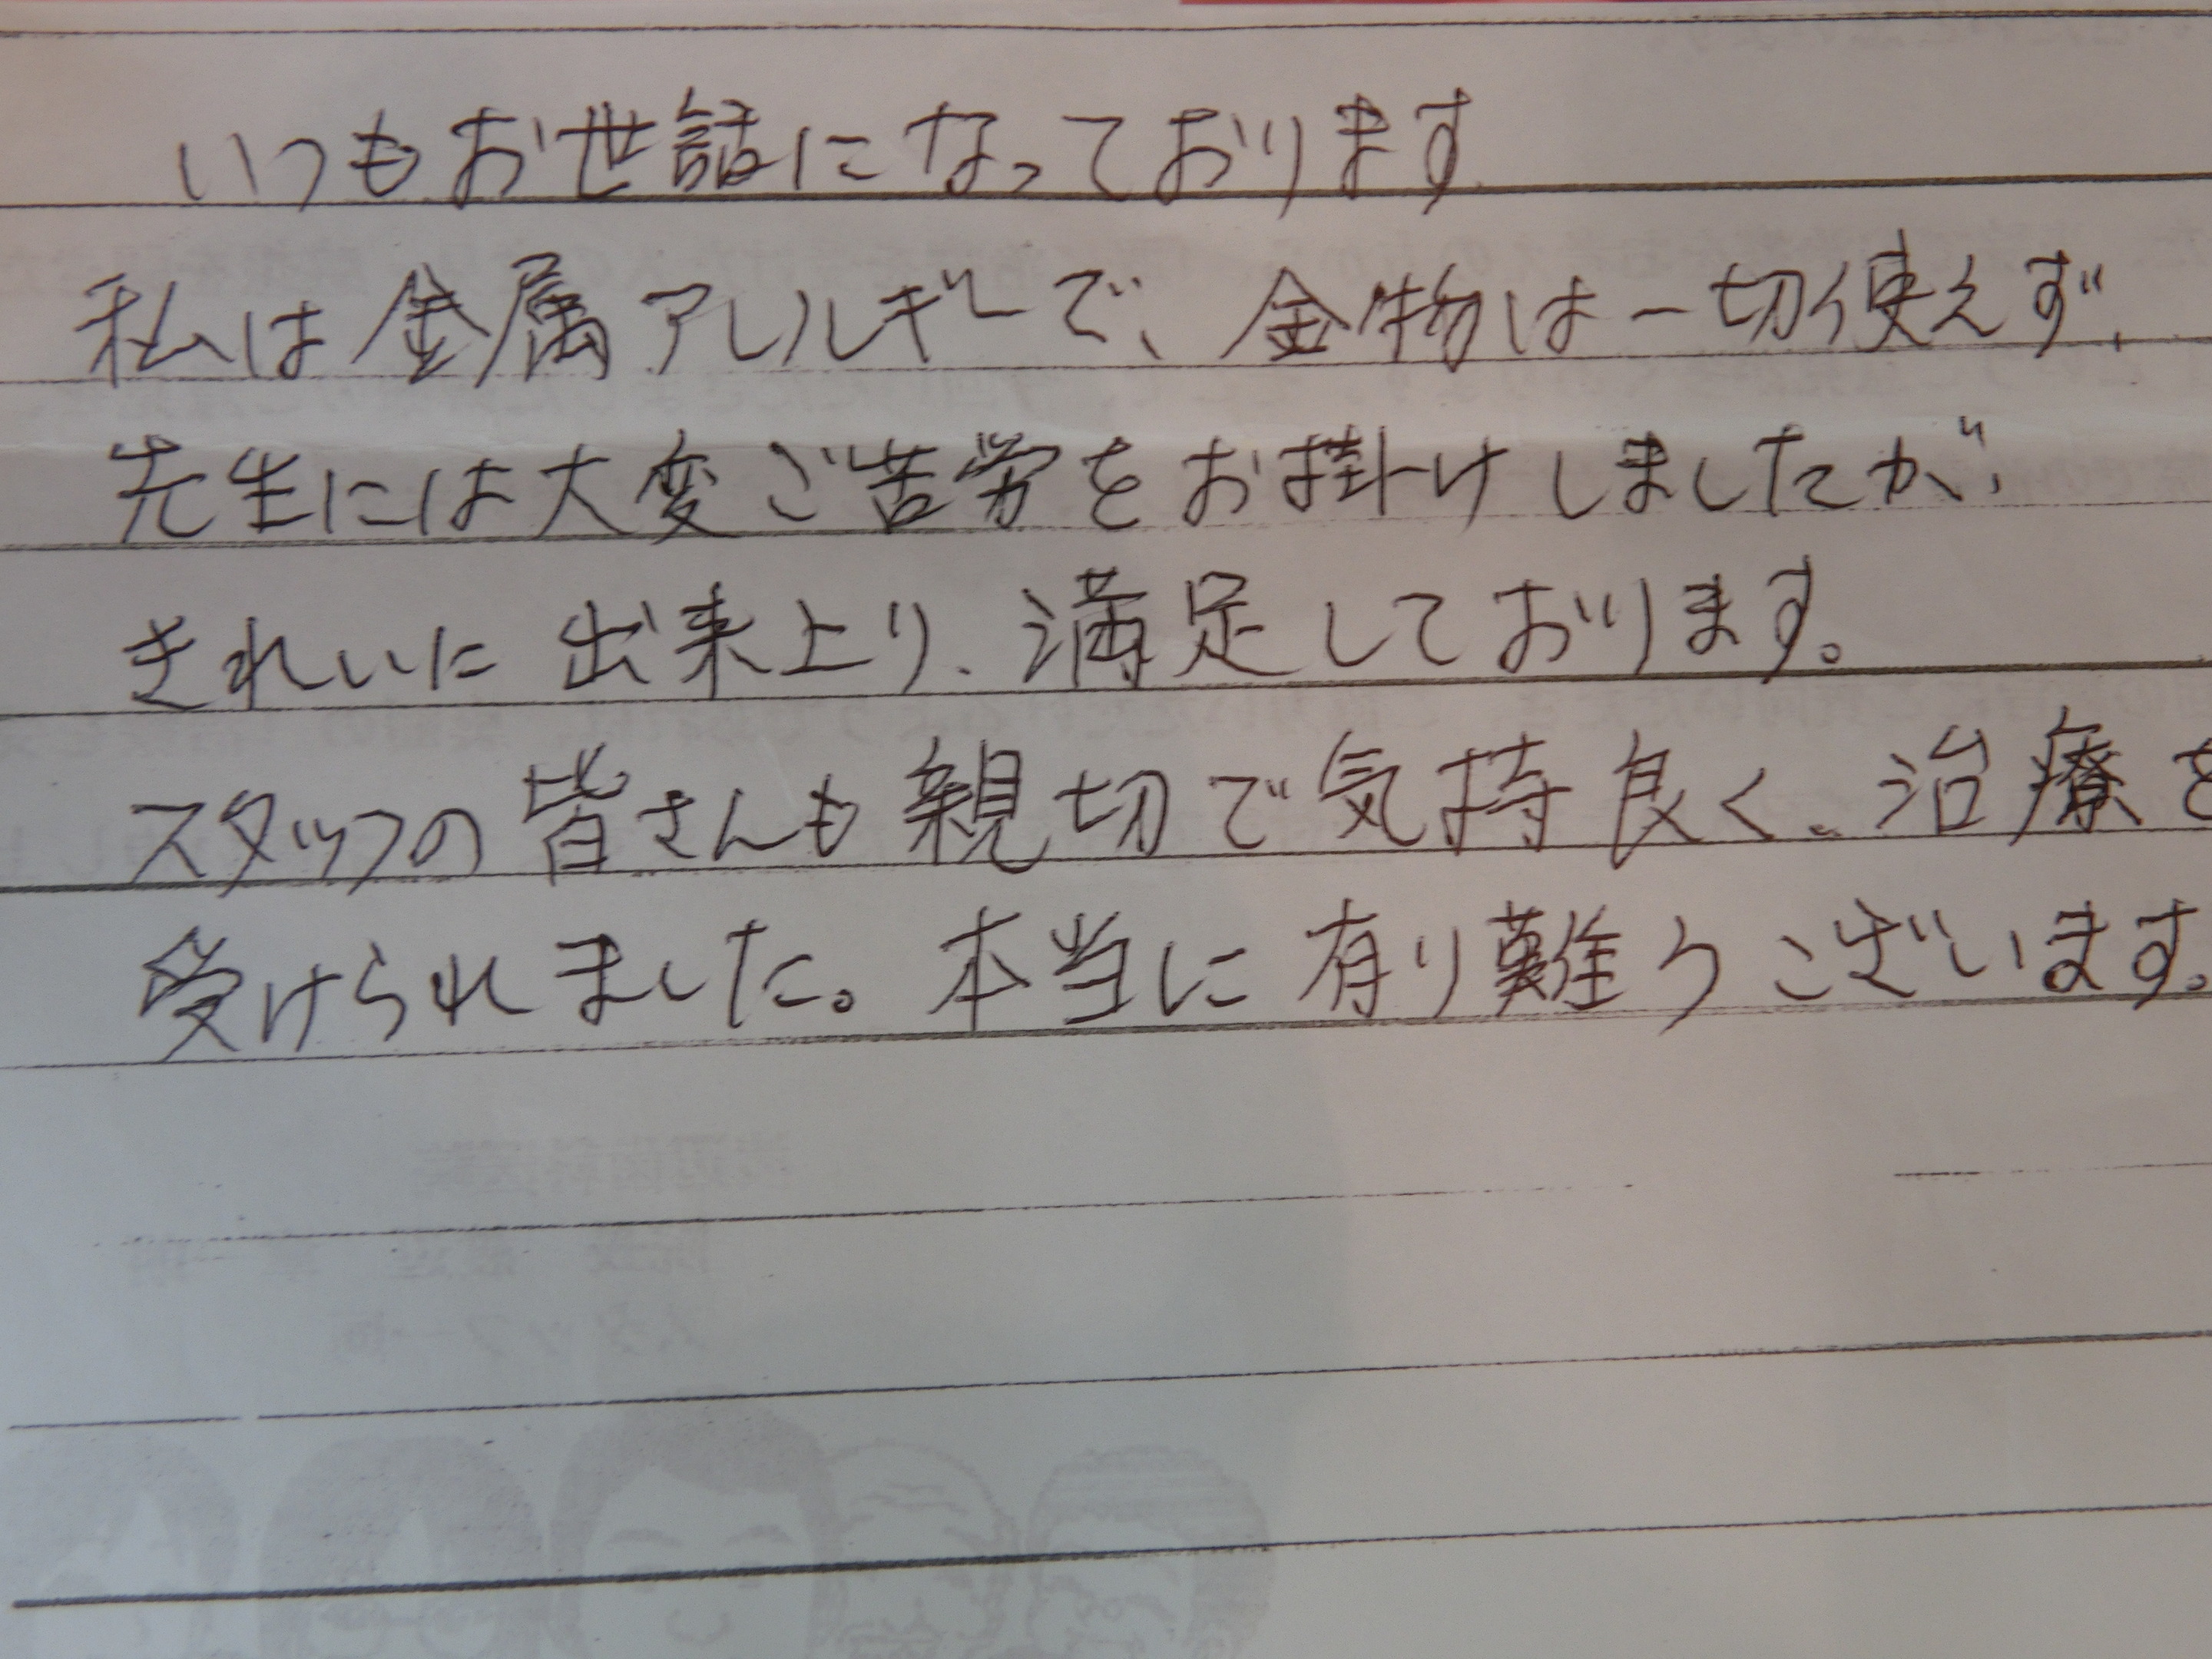 いつもお世話になっております
私は金属アレルギーで、金物は一切使えず、
先生には大変ご苦労をお掛けしましたが、
きれいに出来上り、満足しております。
スタッフの皆さんも親切で気持良く、治療を
受けられました。本当に有り難うございます。